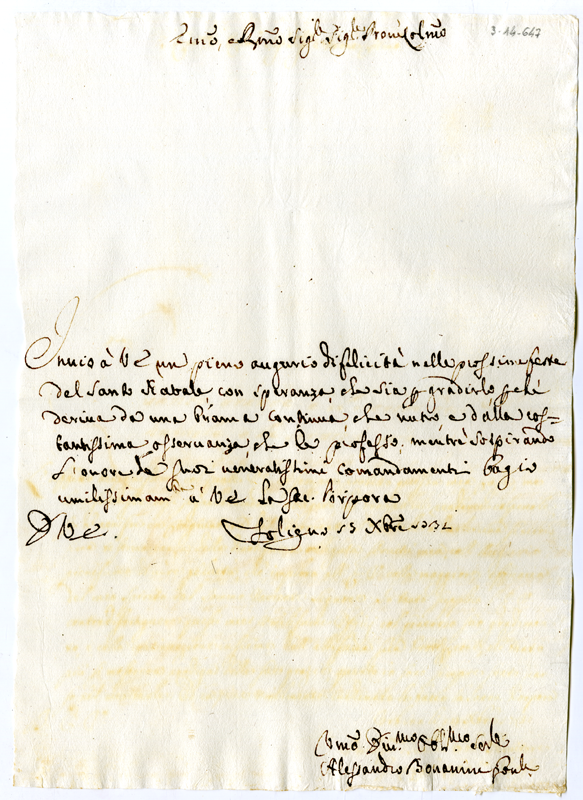 Emo, e Rmo Sigr. Sigr. Pron Colmo
3-14-647
Invio à VE un pieno augurio di felicità nelle prossime feste
del Santo Natale, con speranza, che sia p gradirlo, pché
deriva da una brama continua, che nutro, e dalla cos=
tantissima osservanza, che le professo; mentre sospirando
l'onore de suoi veneratissimi comandamenti bagio
umilissimamte à VE la Sac. Porpora
D VE.
Foligno 15 Xbre
Vmo Divmo Oblmo Serre
Alessandro Bonanini